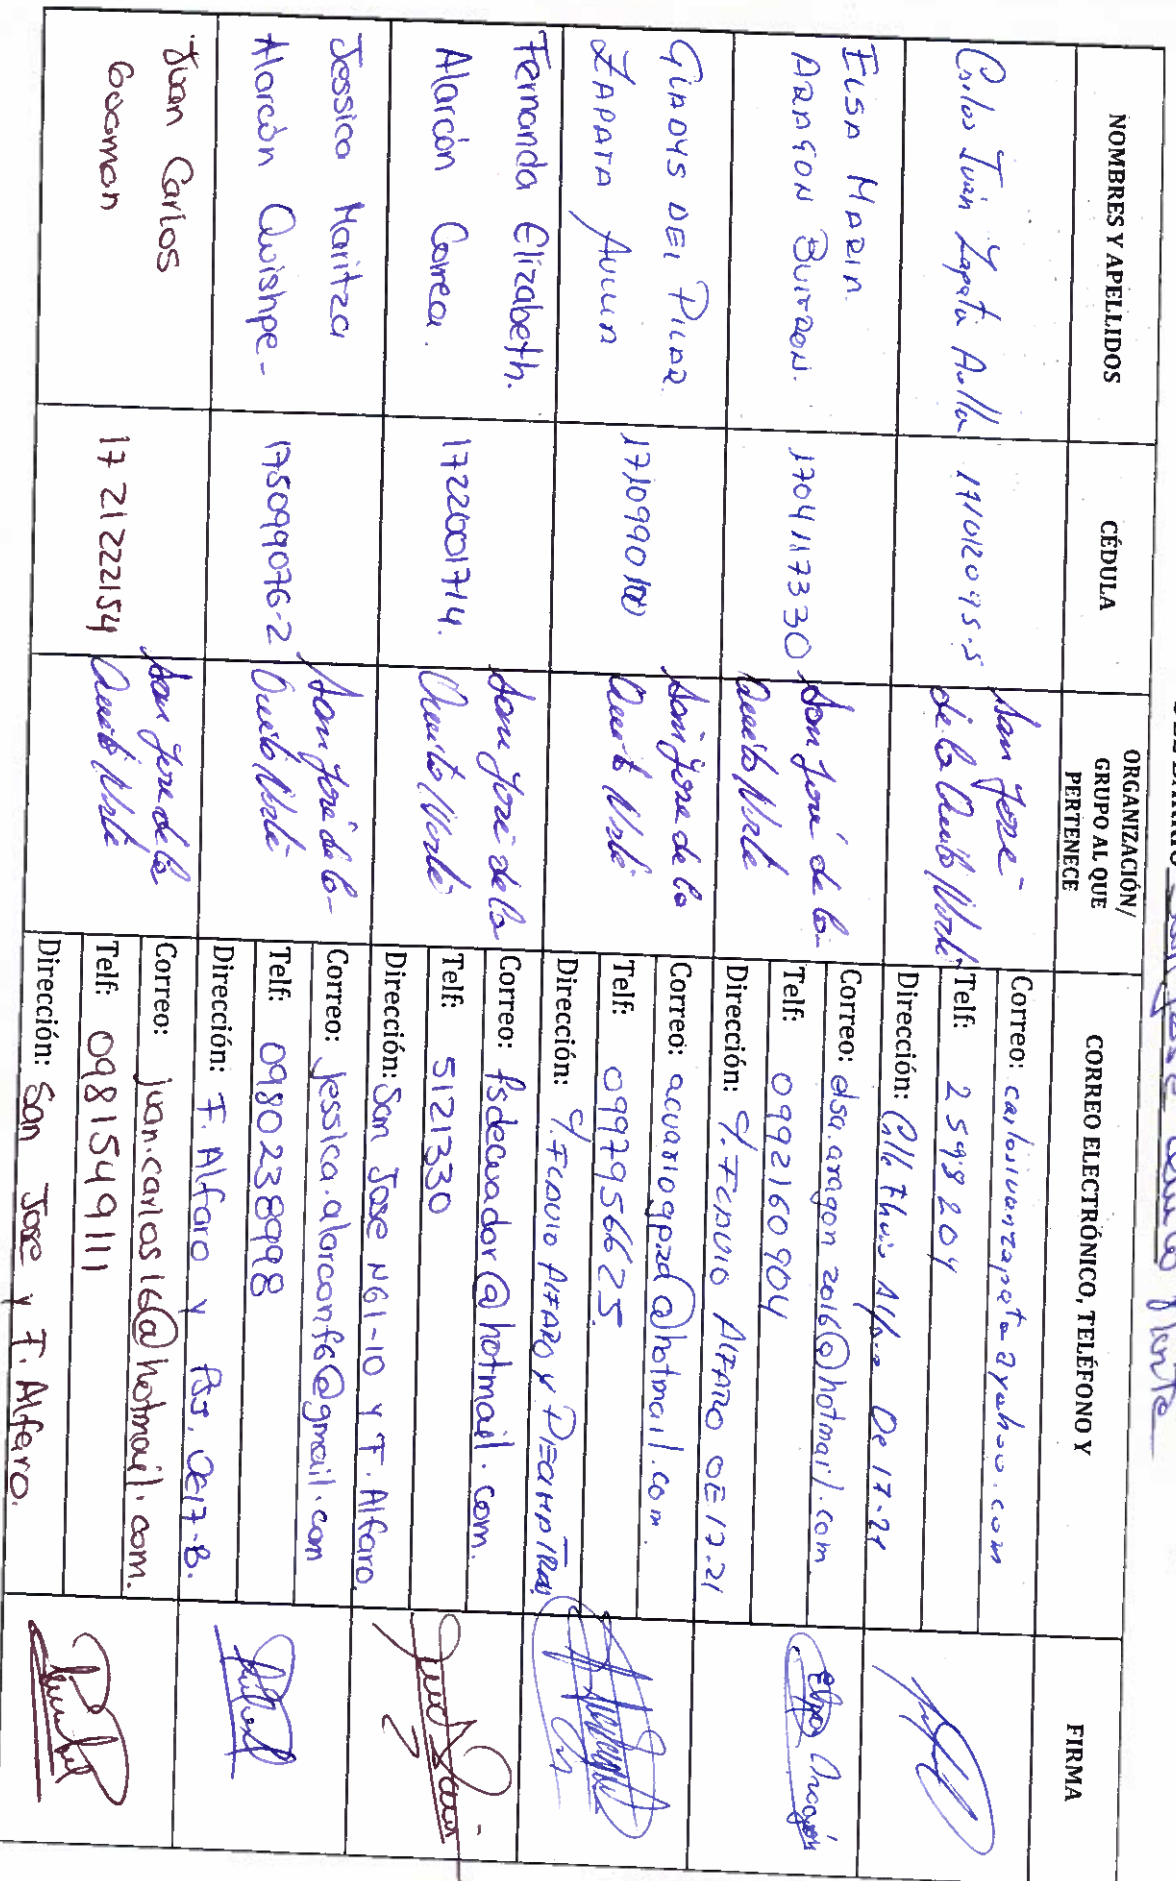 DEL BARRIO San José Quito Norte
NOMBRES Y APELLIDOS
CÉDULA
ORGANIZACIÓN/
GRUPO AL QUE
PERTENECE
CORREO ELECTRÓNICO, TELÉFONO Y
FIRMA
Carlos Iván Zapata Aulla
171012095-5
San José
de la Quito Norte
Correo: carlosivanzapata@yahoo.com
Telf: 2598204
Dirección: Calle Flavio Alfaro Oe 17-21
ELSA MARIA
ARAGON BUITRON.
1704117330
San José de la
Quito Norte
Correo: elsa.aragon2016@hotmail.com
Telf: 0992160904
Dirección: C/. FLAVIO ALFARO OE 17-21
Elsa Aragón
GLADYS DEL PILAR
ZAPATA AULLA
1710990100
San Jose de la
Quito Norte
Correo: acuariogpzd@hotmail.com
Telf: 0997956625.
Dirección: C/ FLAVIO ALFARO Y
Fernanda Elizabeth.
Alarcón Correa.
1722001714.
San José de la
Quito Norte
Correo: fsdecuador@hotmail.com.
Telf: 5121330
Dirección: San Jose N61-10 y F. Alfaro
Jessica Maritza
Alarcón Quishpe-
175099076-2
San José de la-
Quito Norte
Correo: jessica.alarconf6@gmail.com
Telf: 0980238998
Dirección: F. Alfaro y Psj. OE17-B.
Juan Carlos
Guaman
1721222154
San Jose de la
Quito Norte
Correo: juan.carlos16@hotmail.com.
Telf: 0981549111
Dirección: San Jose y F. Alfaro.